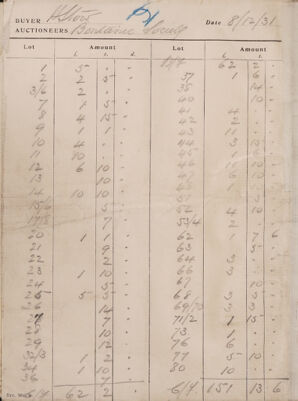 BUYER
Date 8/12/31
AUCTIONEERS
Lot Amount Lot Amount
£ s. d. £ s. d.
1 5 - -
2 2 5 -
3/6 2 - -
7 1 5 -
8 4 15 -
9 1 1 -
10 4 - -
11 10 - -
12 6 10 -
13 10 -
14 10 10 -
5 -
7 -
20 1 1 -
21 9 -
22 2 -
23 1 10 -
24 5 -
25 5 5 -
14 -
27 7 -
10 -
12 -
32/3 1 2 -
34 1 10 -
7 -
62 2 -
62 2 -
37 1 6 -
35 14 -
40 10 -
41 4 - -
42 2 - -
43 11 - -
44 3 15 -
45 1 -
46 10 -
47 10 -
5 -
52 4 10 -
53/4 2 - -
62 1 7 6
63 5 -
64 3 - -
66 3 - -
67 10 -
68 3 5 -
69/70 3 3 -
71/2 1 15 -
73 1 - -
76 6 - -
77 5 10 -
80 10 - -
151 13 6